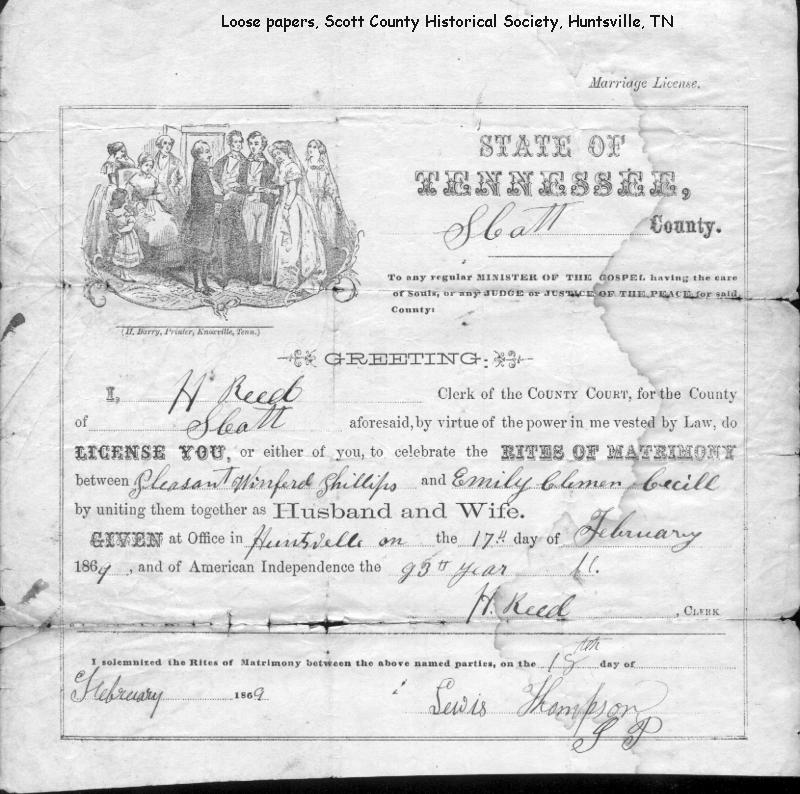 Loose papers, Scott County Historical Society, Huntsville, TN
Marriage License.
STATE OF
TENNESSEE,
Scott County.
To any regular MINISTER OF THE GOSPEL having the care
of Souls, or any JUDGE or JUSTICE OF THE PEACE for said
County:
(H. Barry, Printer, Knoxville, Tenn.)
GREETING:
I, H Reed Clerk of the COUNTY COURT, for the County
of Scott aforesaid, by virtue of the power in me vested by Law, do
LICENSE YOU, or either of you, to celebrate the RITES OF MATRIMONY
between Pleasant Winford Phillips and Emily Clemen Cecill
by uniting them together as Husband and Wife.
GIVEN at Office in Huntsville on the 17th day of February
1869, and of American Independence the 93th year
H. Reed, CLERK
I solemnized the Rites of Matrimony between the above named parties, on the 18th day of
February 1869 Lewis Thompson
J P